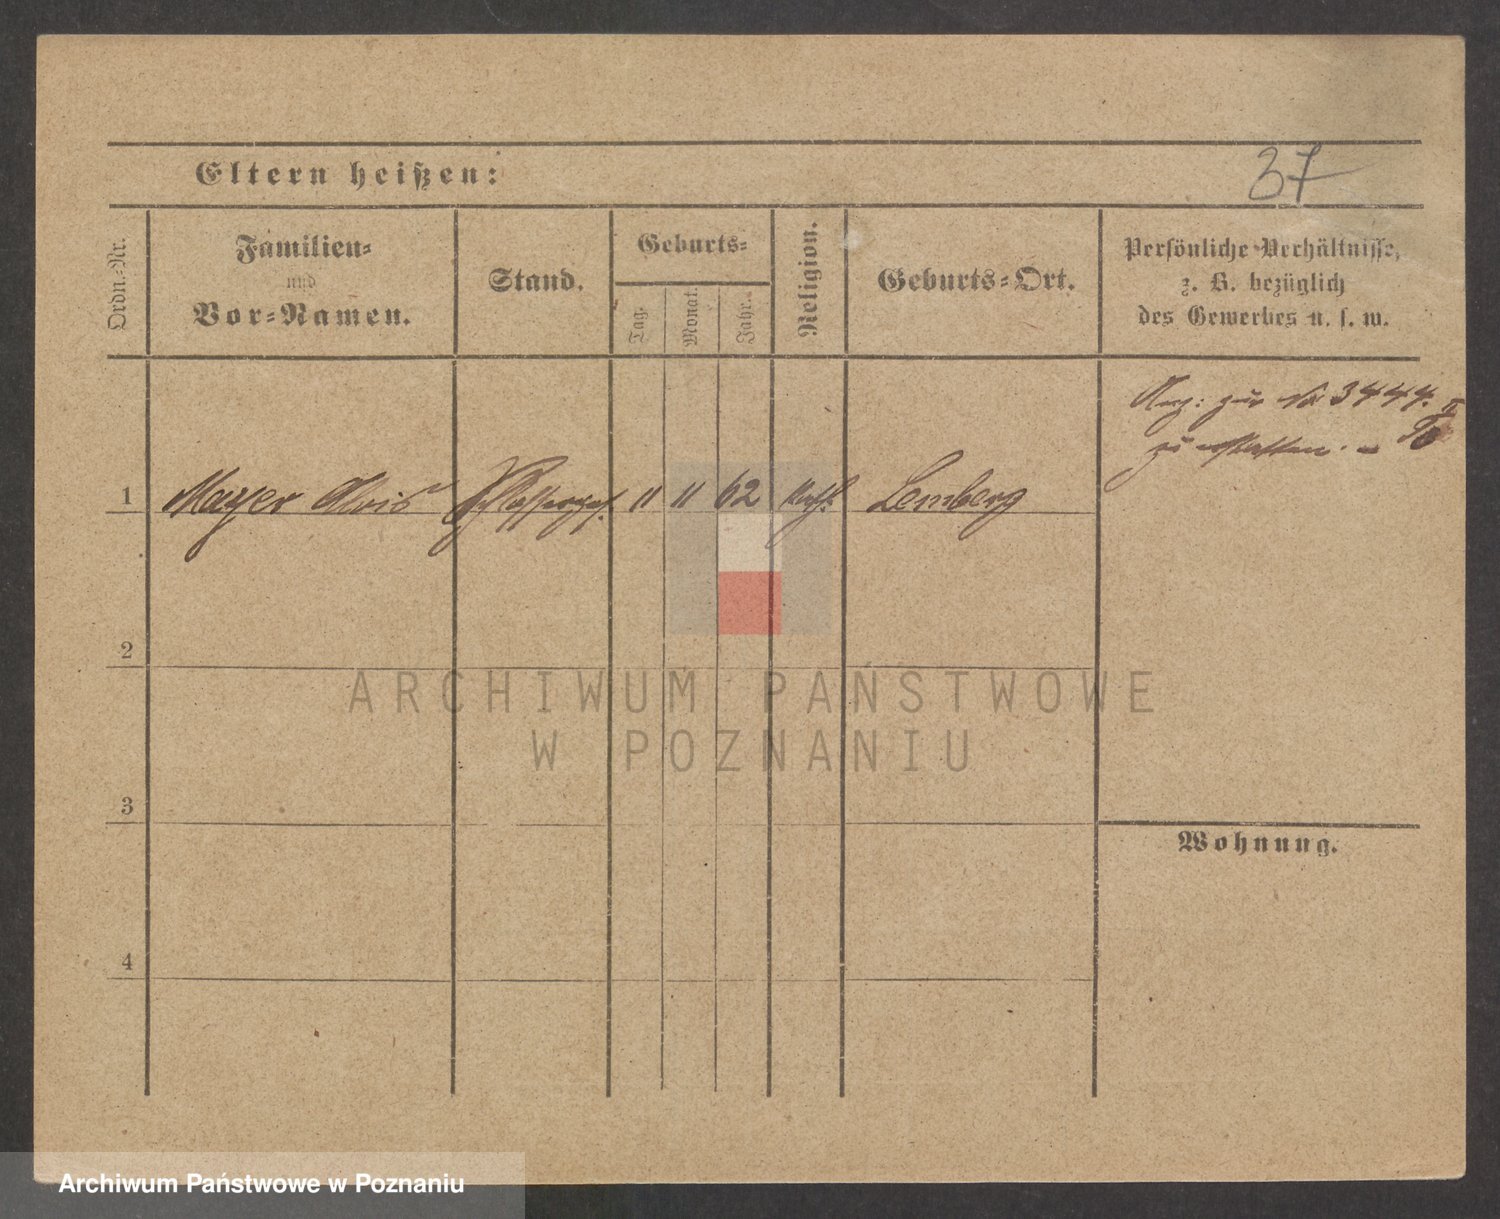 37
Eltern heißen:
Ordn.-Nr.
Familien-
und
Vor-Namen.
Stand.
Geburts-
Tag.
Monat.
Jahr.
Religion.
Geburts-Ort.
Persönliche Verhältnisse,
z. B. bezüglich
des Gewerbes u. s. w.
zur No 3444. II
zu erstatten. –
1 Mayer Alois Schlosserges. 11 11 62 kath. Lemberg
2
ARCHIWUM PAŃSTWOWE
W POZNANIU
3
Wohnung.
4
Archiwum Państwowe w Poznaniu